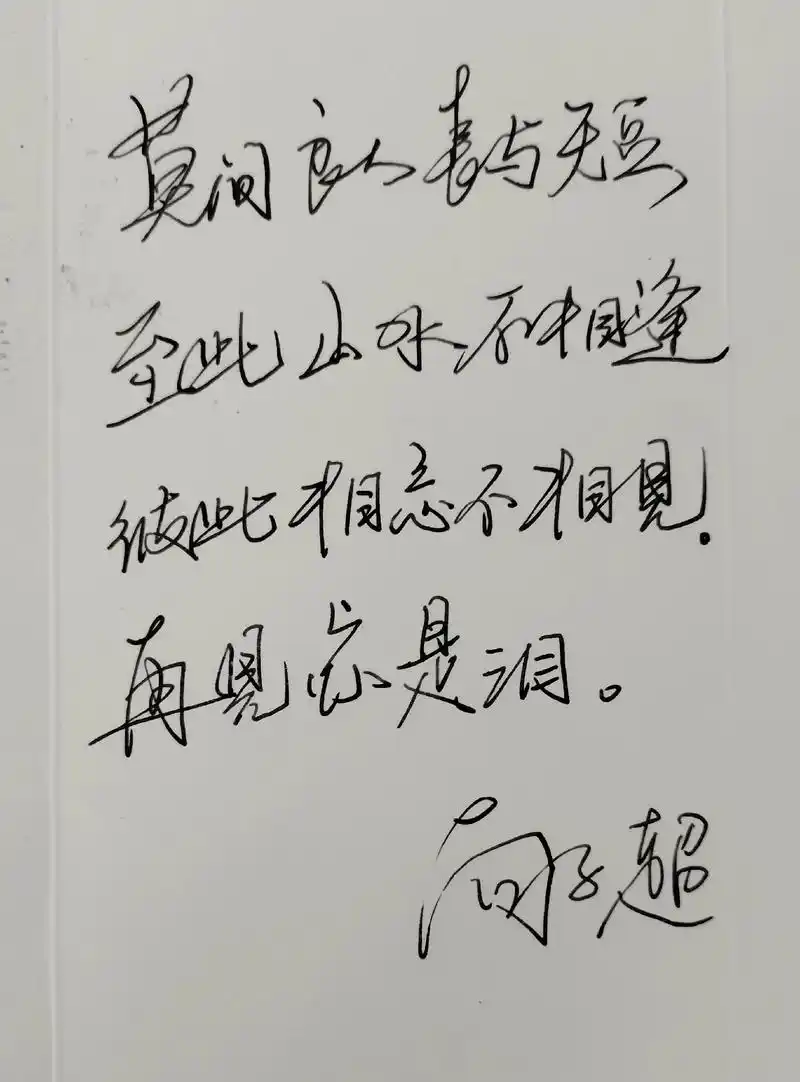 莫问良人长与短
至此山水不相逢
彼此相忘不相見.
再見亦是泪。
向子超